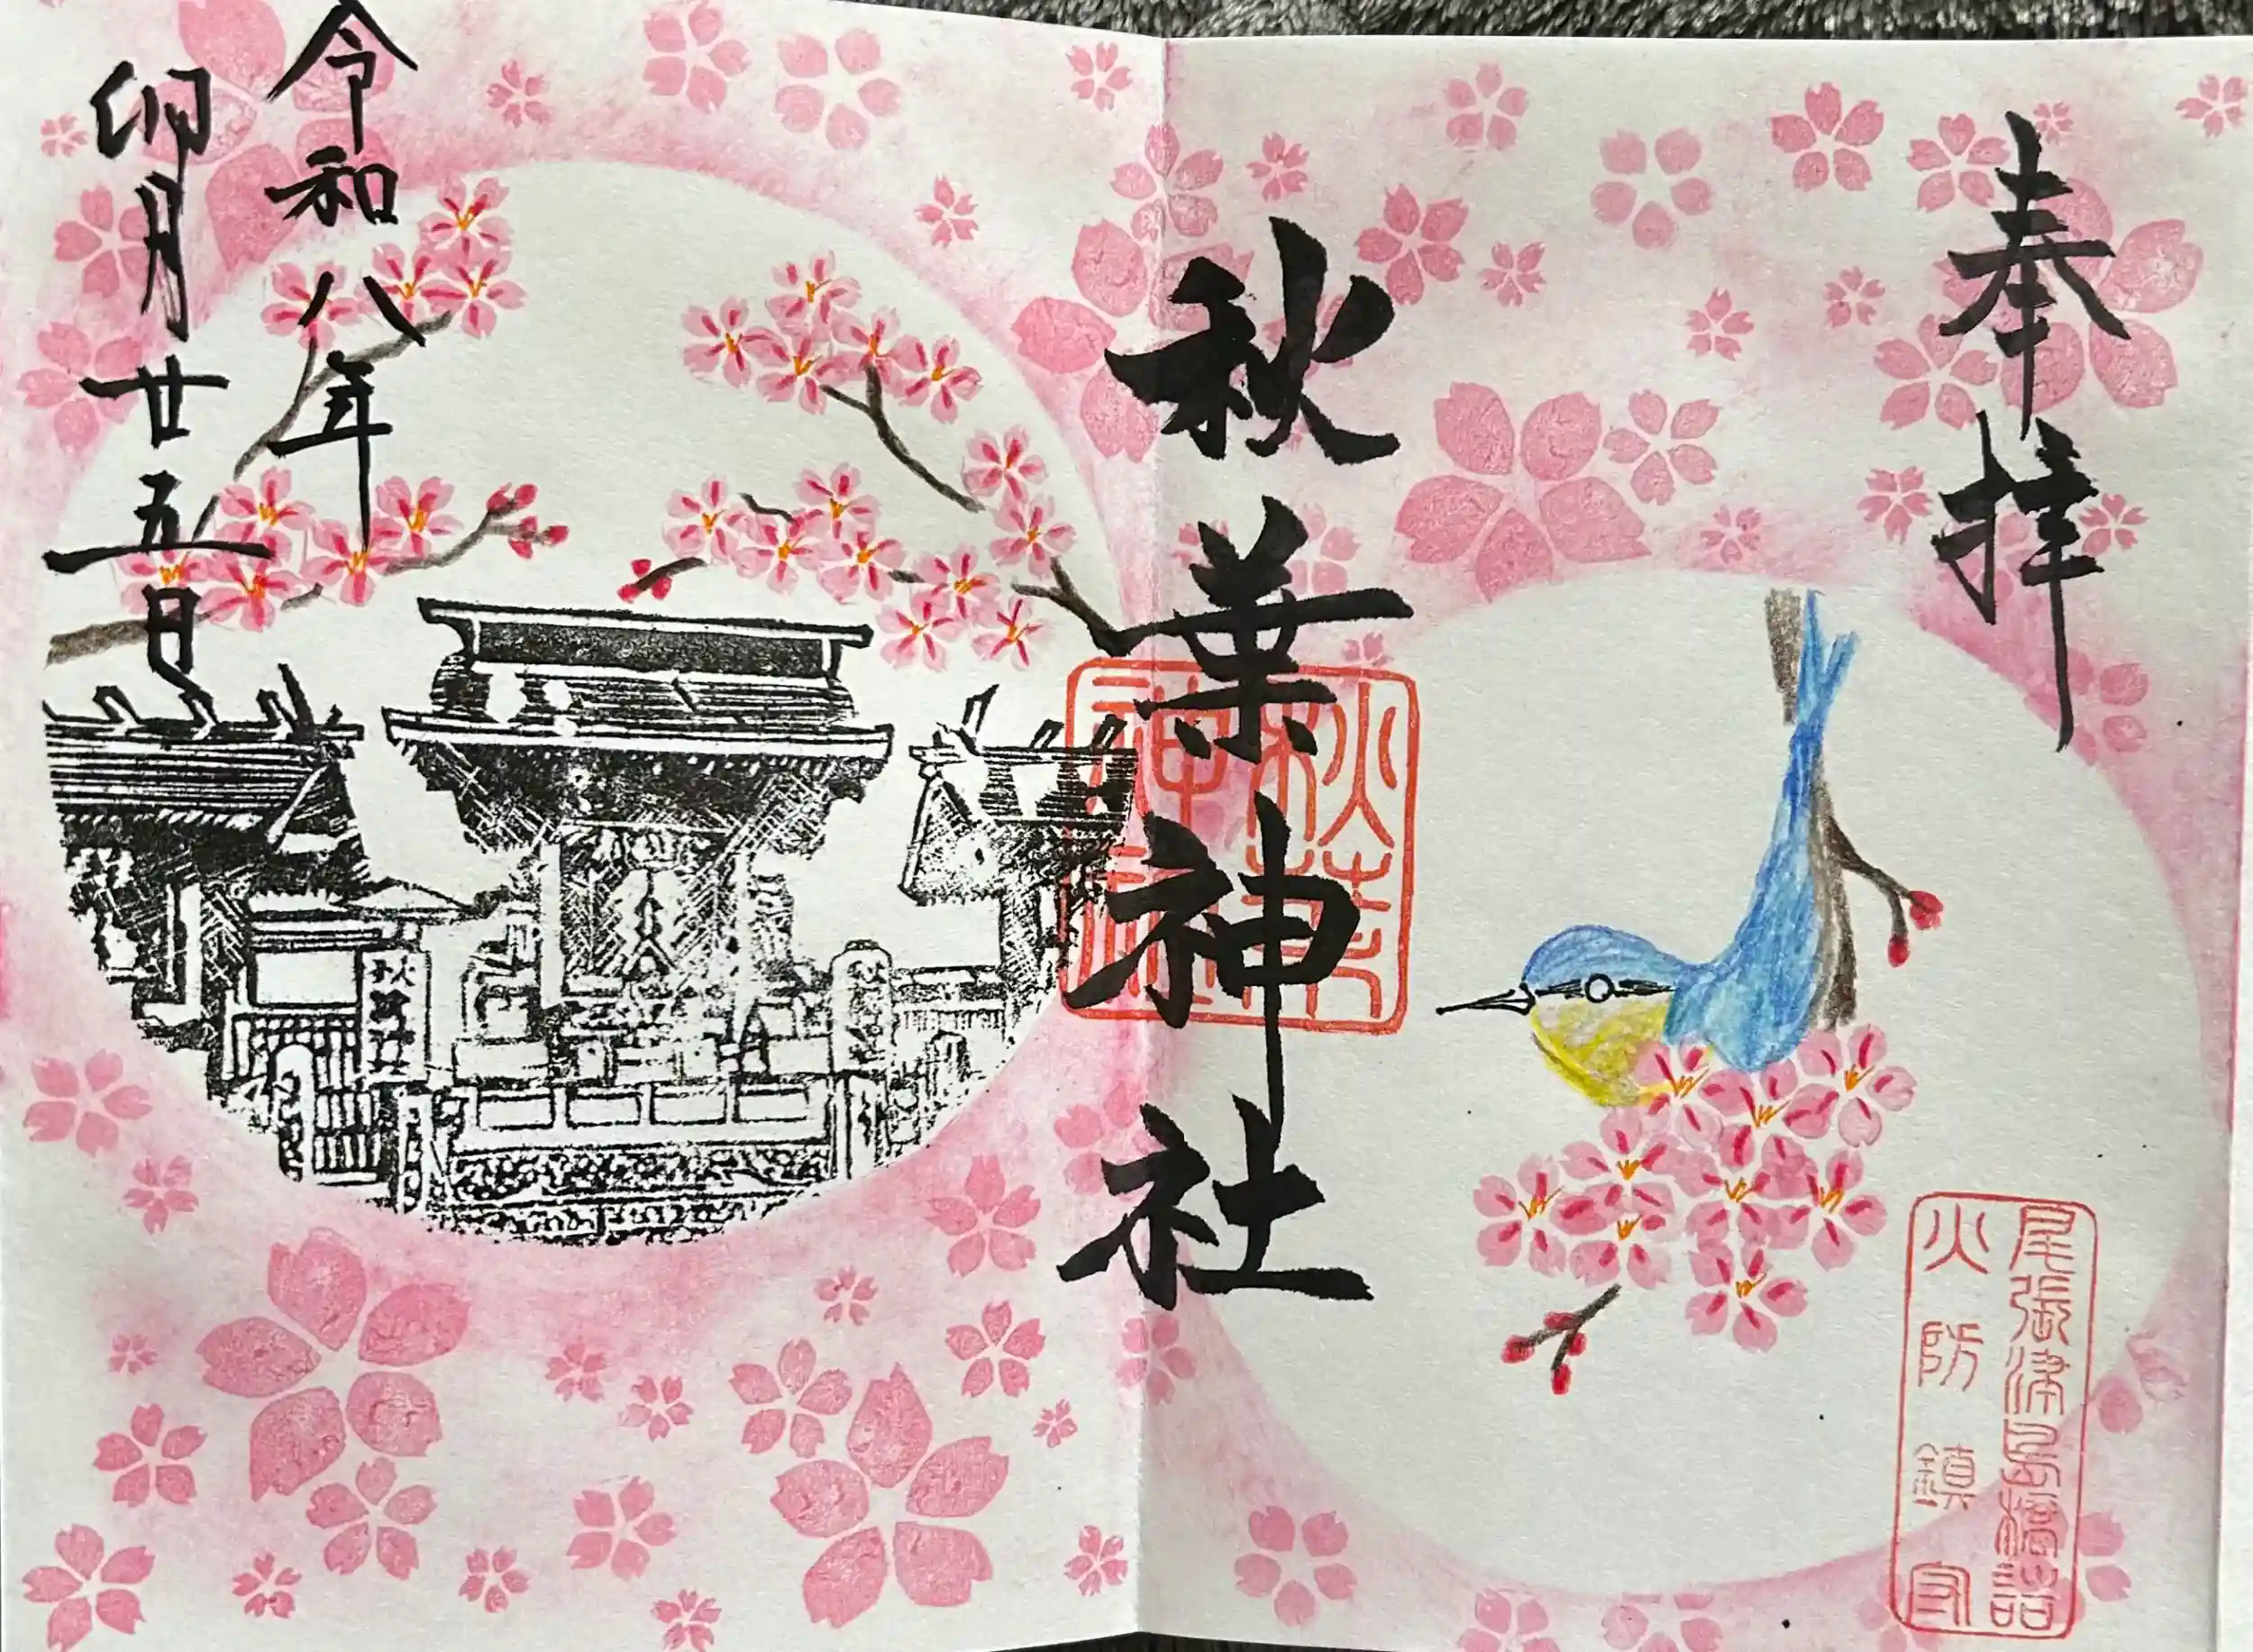 奉拝
尾張津島橋詰
火防鎮守
秋葉神社
秋葉
神社
令和八年
卯月廿五日